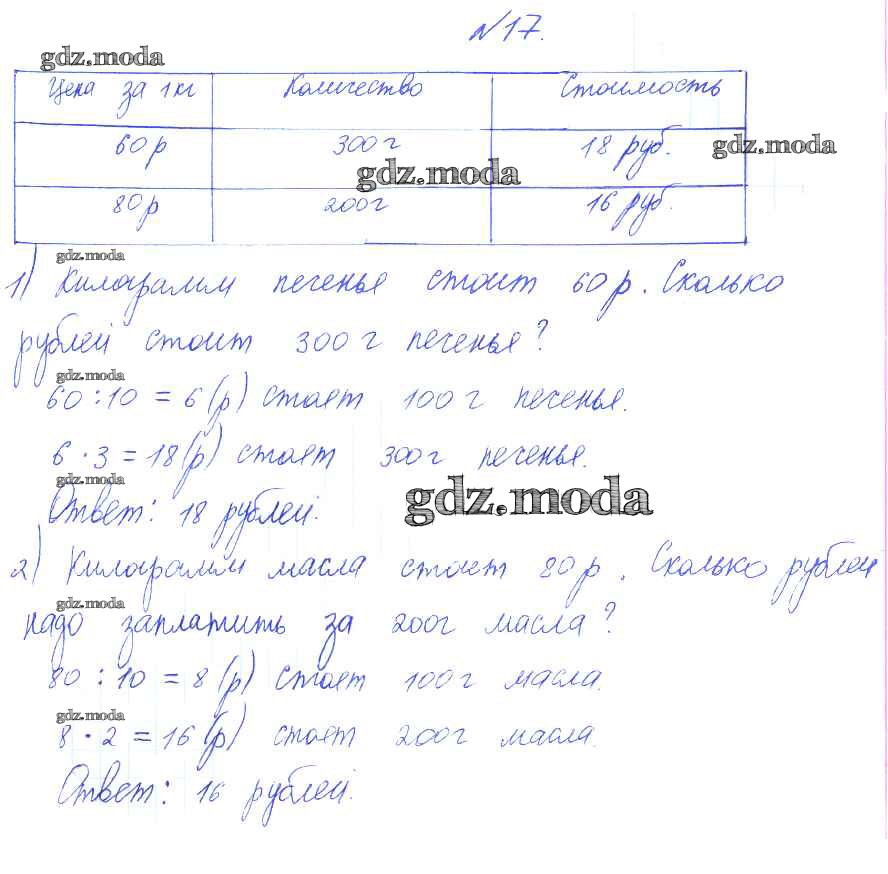 №17.
gdz.moda
Цена за 1кг Количество Стоимость
60р 300г 18 руб. gdz.moda
gdz.moda
80р 200г 16 руб.
gdz.moda
1) Килограмм печенья стоит 60 р. Сколько
рублей стоит 300 г печенья?
gdz.moda
60 : 10 = 6 (р) стоит 100 г печенья.
6 · 3 = 18 (р) стоит 300г печенья.
gdz.moda
gdz.moda
Ответ: 18 рублей.
2) Килограмм масла стоит 80 р. Сколько рублей
gdz.moda
надо заплатить за 200г масла?
80 : 10 = 8 (р) стоит 100 г масла.
gdz.moda
8 · 2 = 16 (р) стоит 200г масла.
Ответ: 16 рублей.